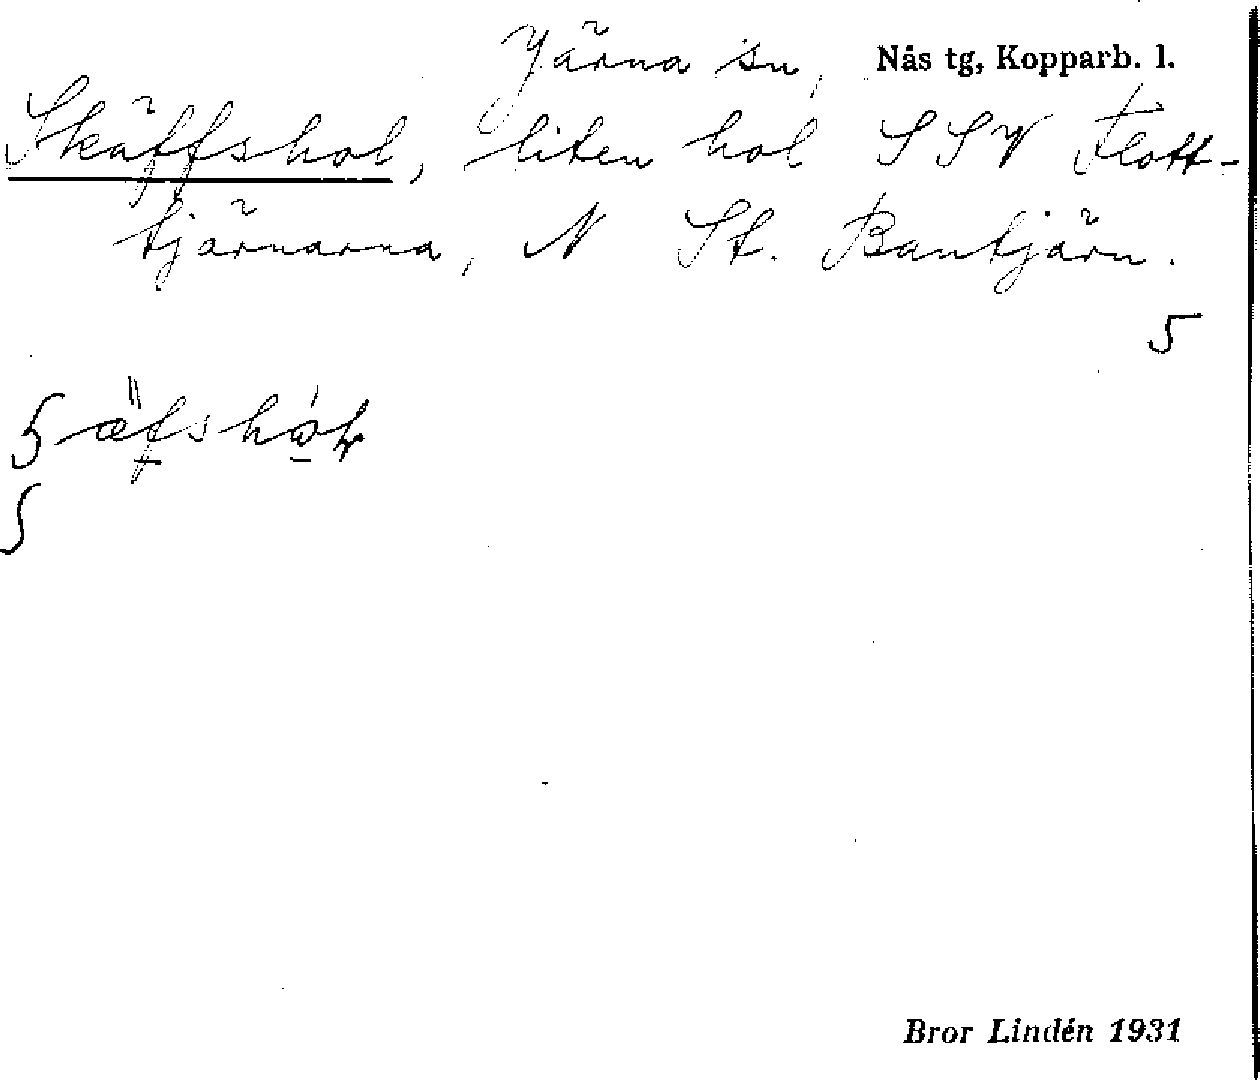 Järna sn, Nås tg, Kopparb. l.
Skäffshol, liten hol SSV Flott-
tjärnarna, N St. Bantjärn.
5
Bror Lindén 1931